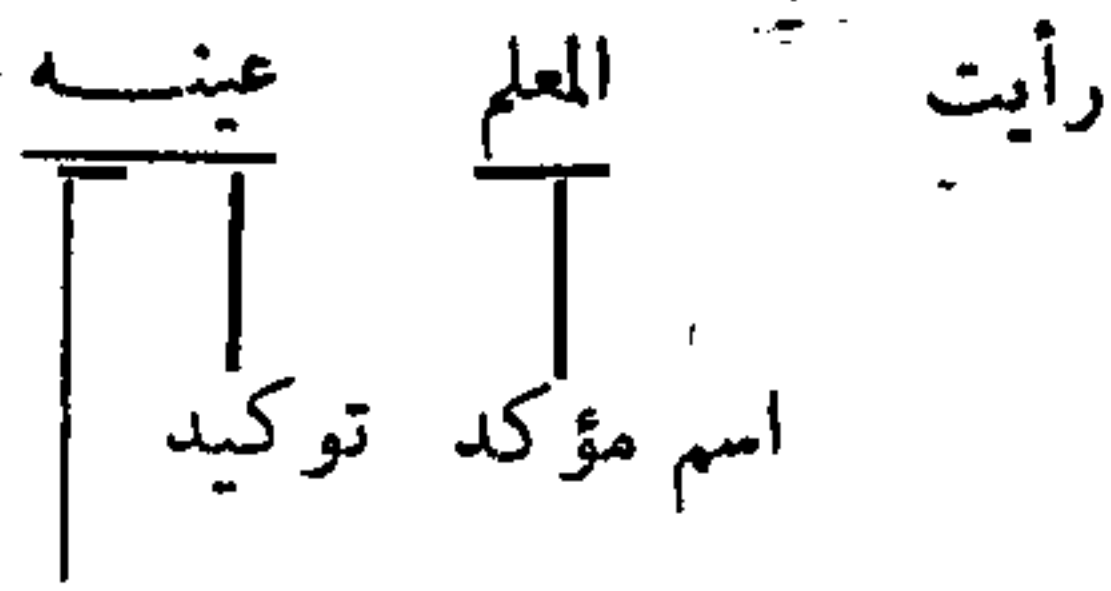 رأيت المعلم عينه
اسم مؤكد توكيد